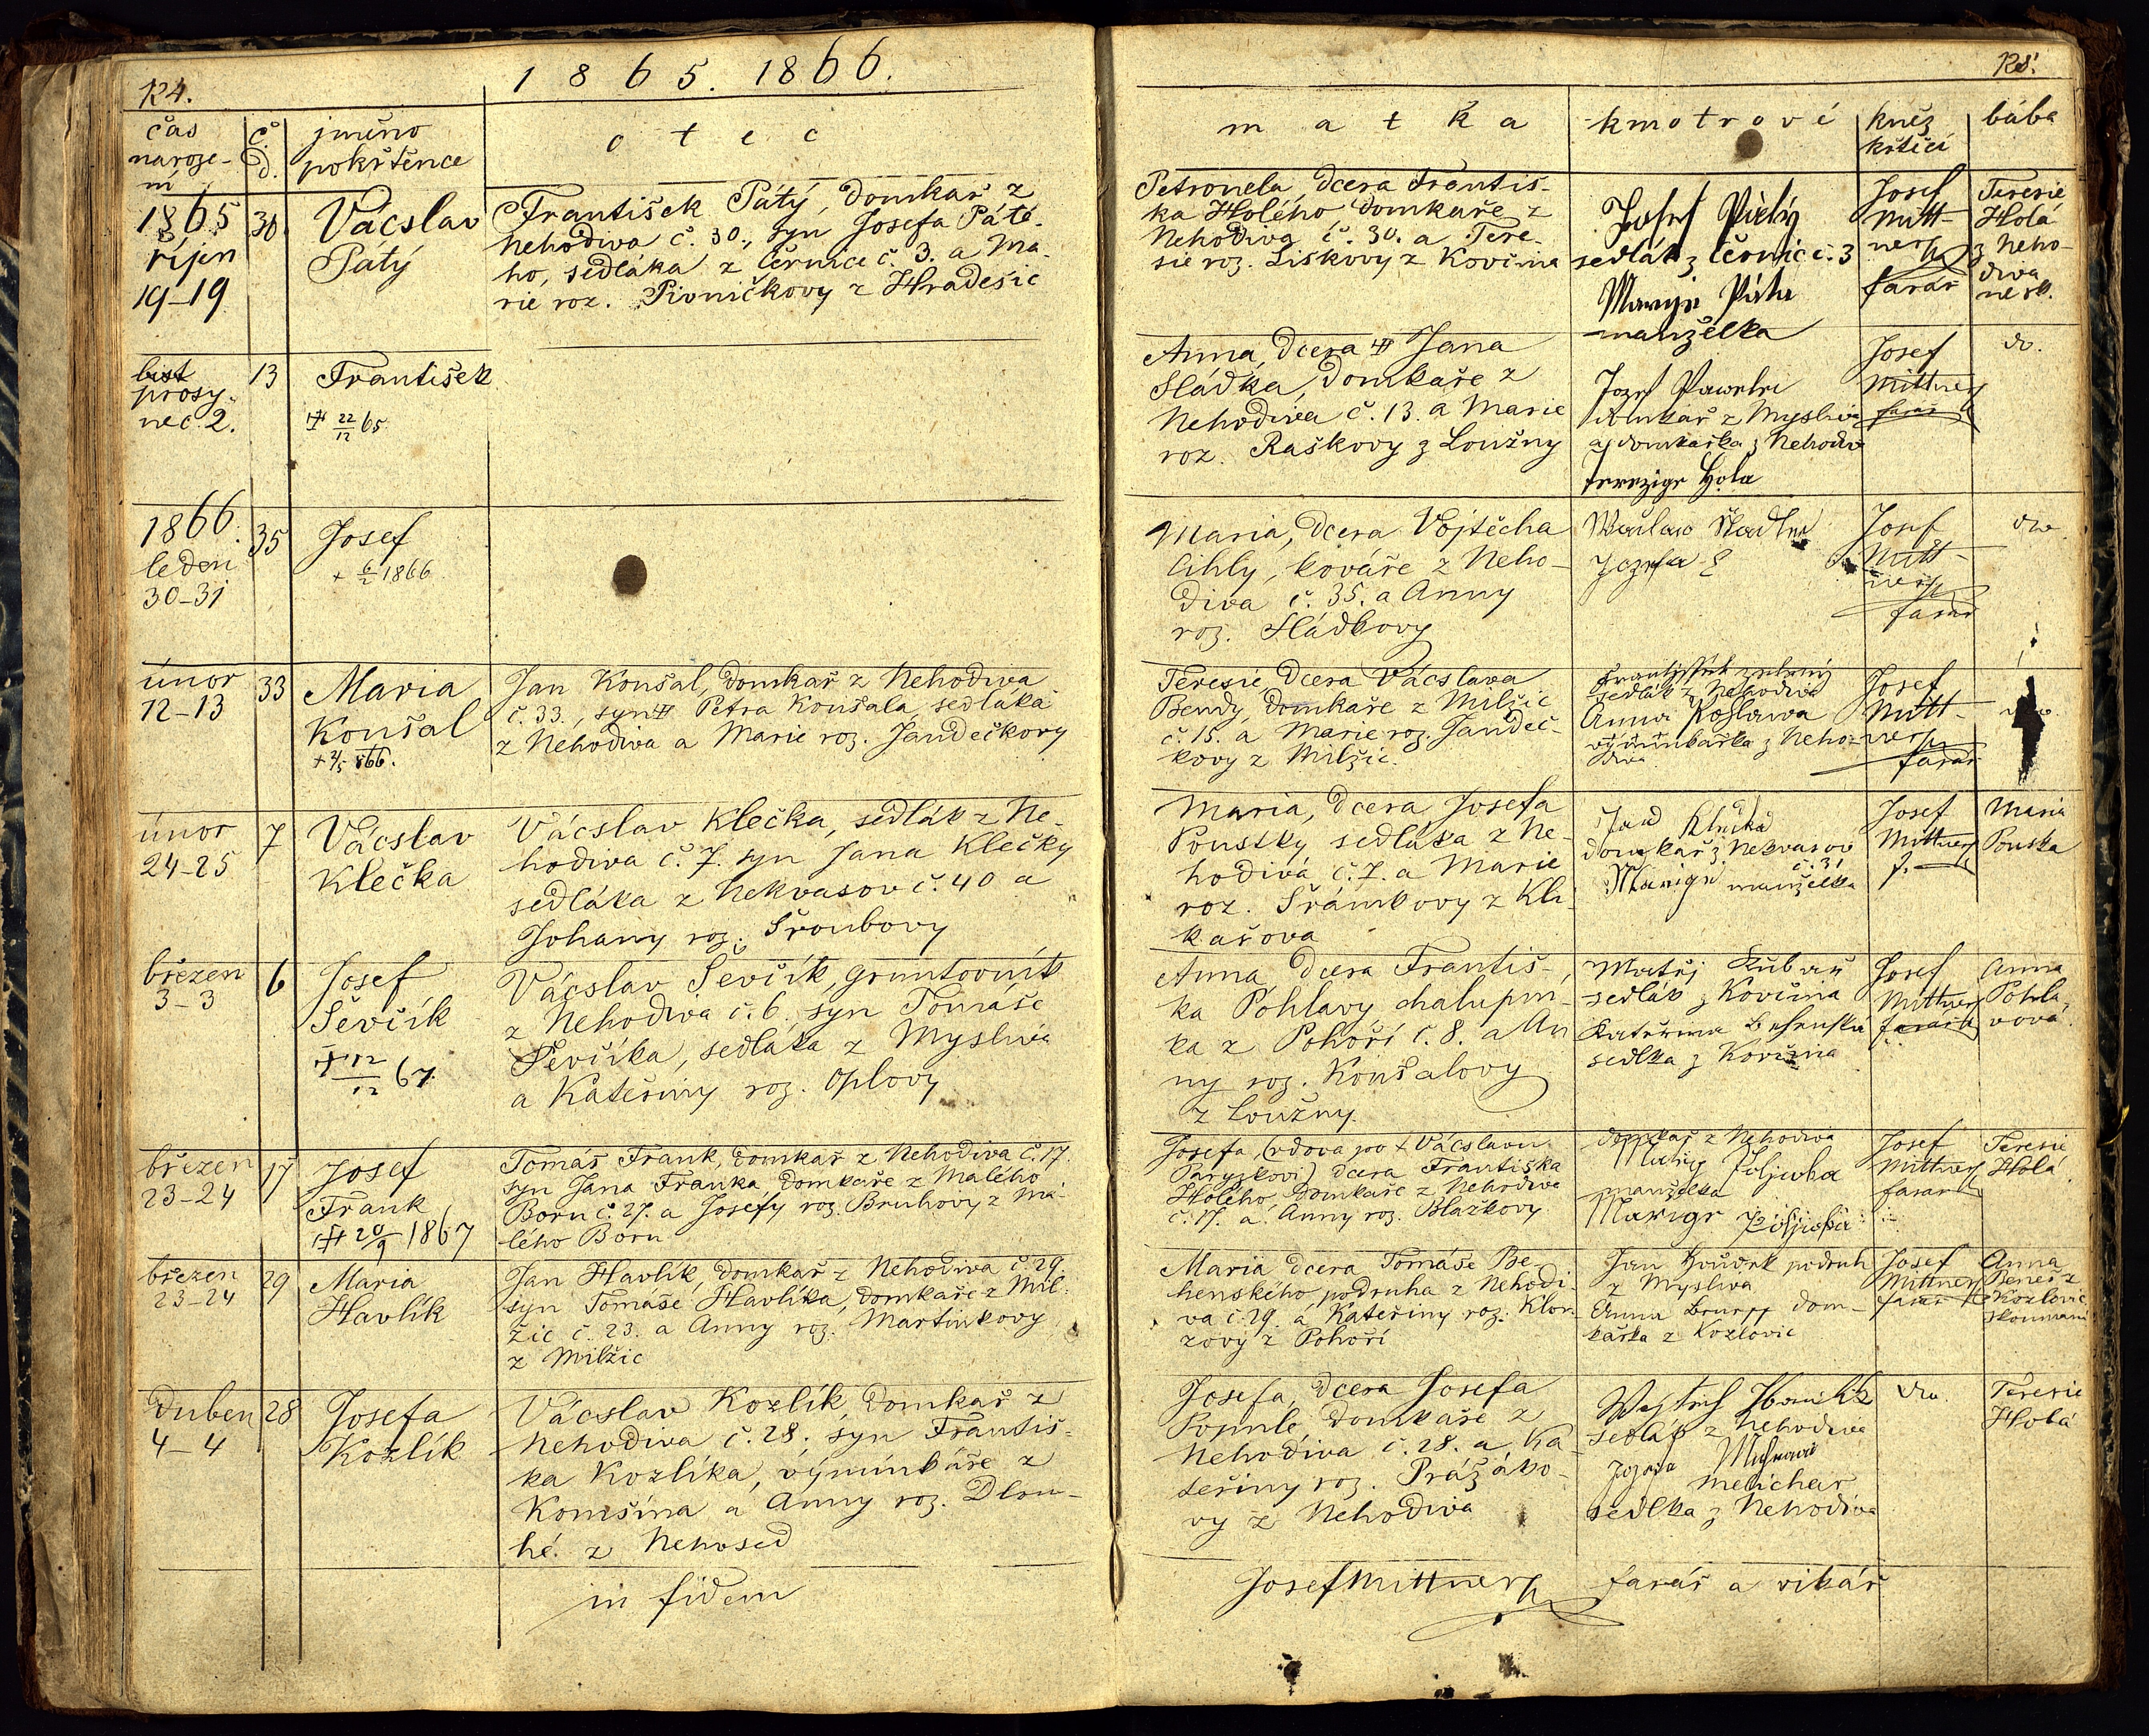 124.
1865. 1866.
čas naroze-ní
č. d.
jméno pokřtěnce
otec
1865
říjen
19-19
30
Vácslav
Pátý
František Pátý, domkař z
Nehodiva č. 30., syn Josefa Páté-
ho, sedláka z Černice č. 3. a Ma-
rie roz. Pivničkovy z Hradešic
prosy-
nec 2.
13
František
22/12 65
1866.
leden
30-31
35
Josef
+ 6/2 1866
únor
12-13
33
Maria
Koušal
Jan Koušal, domkař z Nehodiva
č. 33., syn Petra Koušala sedláka
z Nehodiva a Marie roz. Jandečkovy
únor
24-25
7
Vácslav
Klečka
Vácslav Klečka, sedlák z Ne-
hodiva č. 7. syn Jana Klečky
sedláka z Nekvasov č. 40 a
Johany roz. Šroubovy
březen
3-3
6
Josef
Ševčík
12/12 67.
Vácslav Ševčík, gruntovník
z Nehodiva č. 6. syn Tomáše
Ševčíka, sedláka z Myslíva
a Kateřiny roz. Oplovy
březen
23-24
17
Josef
Frank
20/9 1867
Tomáš Frank, domkař z Nehodiva č. 17.
syn Jana Franka domkaře z Malého
Boru č. 27. a Josefy roz. Bruhovy z Ma-
lého Boru
březen
23-24
29
Maria
Havlík
Jan Havlík, domkař z Nehodiva č. 29.
syn Tomáše Havlíka, domkaře z Mil-
žic č. 23. a Anny roz. Martinkovy
z Milžic
Duben
4-4
28
Josefa
Kozlík
Vácslav Kozlík, domkař z
Nehodiva č. 28. syn Františ-
ka Kozlíka, výminkáře z
Komšína a Anny roz. Dlou-
hé. z Nehosed
in fidem
125.
matka
kmotrové
kněz
křtící
bába
Petronela, dcera Františ-
ka Holého, domkaře z
Nehodiva č. 30. a Tere-
sie roz. Liskovy z Kovčína
Josef Pátý
sedlák z Černic č. 3
manželka
Josef
Mitt-
ner
farář
Teresie
Holá
z Neho-
diva
Anna, dcera Jana
Sládka, domkaře z
Nehodiva č. 13. a Marie
roz. Raškovy z Loužny
domkař z Myslíva
a domkařka z Nehodiva
Terezige Hola
Josef
Mittner
farář
do.
Maria, dcera Vojtěcha
Cihly, kováře z Neho-
diva č. 35. a Anny
roz. Sládkovy
Josef
Mitt-
ner
farář
do
Teresie dcera Vácslava
Bendy, domkaře z Milžic
č. 15. a Marie roz. Jandeč-
kovy z Milžic.
sedlák z Nehodiva
Anna
výminkařka z Neho-
diva
Josef
Mitt-
ner
farář
Maria, dcera Josefa
Poustky sedláka z Ne-
hodiva č. 7. a Marie
roz. Šrámkovy z Kli-
kařova
domkař z Nekvasov
č. 31
manželka
Josef
Mittner
f.
Maria
Pouska
Anna, dcera Františ-
ka Pohlavy chalupní-
ka z Pohoří č. 8. a An
ny roz. Koušalovy
z Loužny.
Matěj
sedlák z Kovčína
Kateřina
sedlka z Kovčína
Josef
Mittner
farář
Anna
Pohla-
vová
Josefa, (vdova po + Vácslavu
Paryzkovi) dcera Františka
Holého domkaře z Nehodiva
č. 17. a Anny roz. Blažkovy
domkař z Nehodiva
manželka
Josef
Mittner
farář
Teresie
Holá
Maria dcera Tomáše Be-
henského podruha z Nehodi-
va č. 29. a Kateřiny roz. Klou-
zovy z Pohoří
Jan podruh
z Myslíva
Anna dom-
kařka z Kozlovic
Josef
Mittner
farář
Anna
Beneš z
Kozlovic
Josefa, dcera Josefa
Popule, domkaře z
Nehodiva č. 28. a Ka-
teřiny roz. Prážáko-
vy z Nehodiva
sedlák z Nehodiva
melichar
sedlka z Nehodiva
do.
Teresie
Holá
Josef Mittner farář a vikář